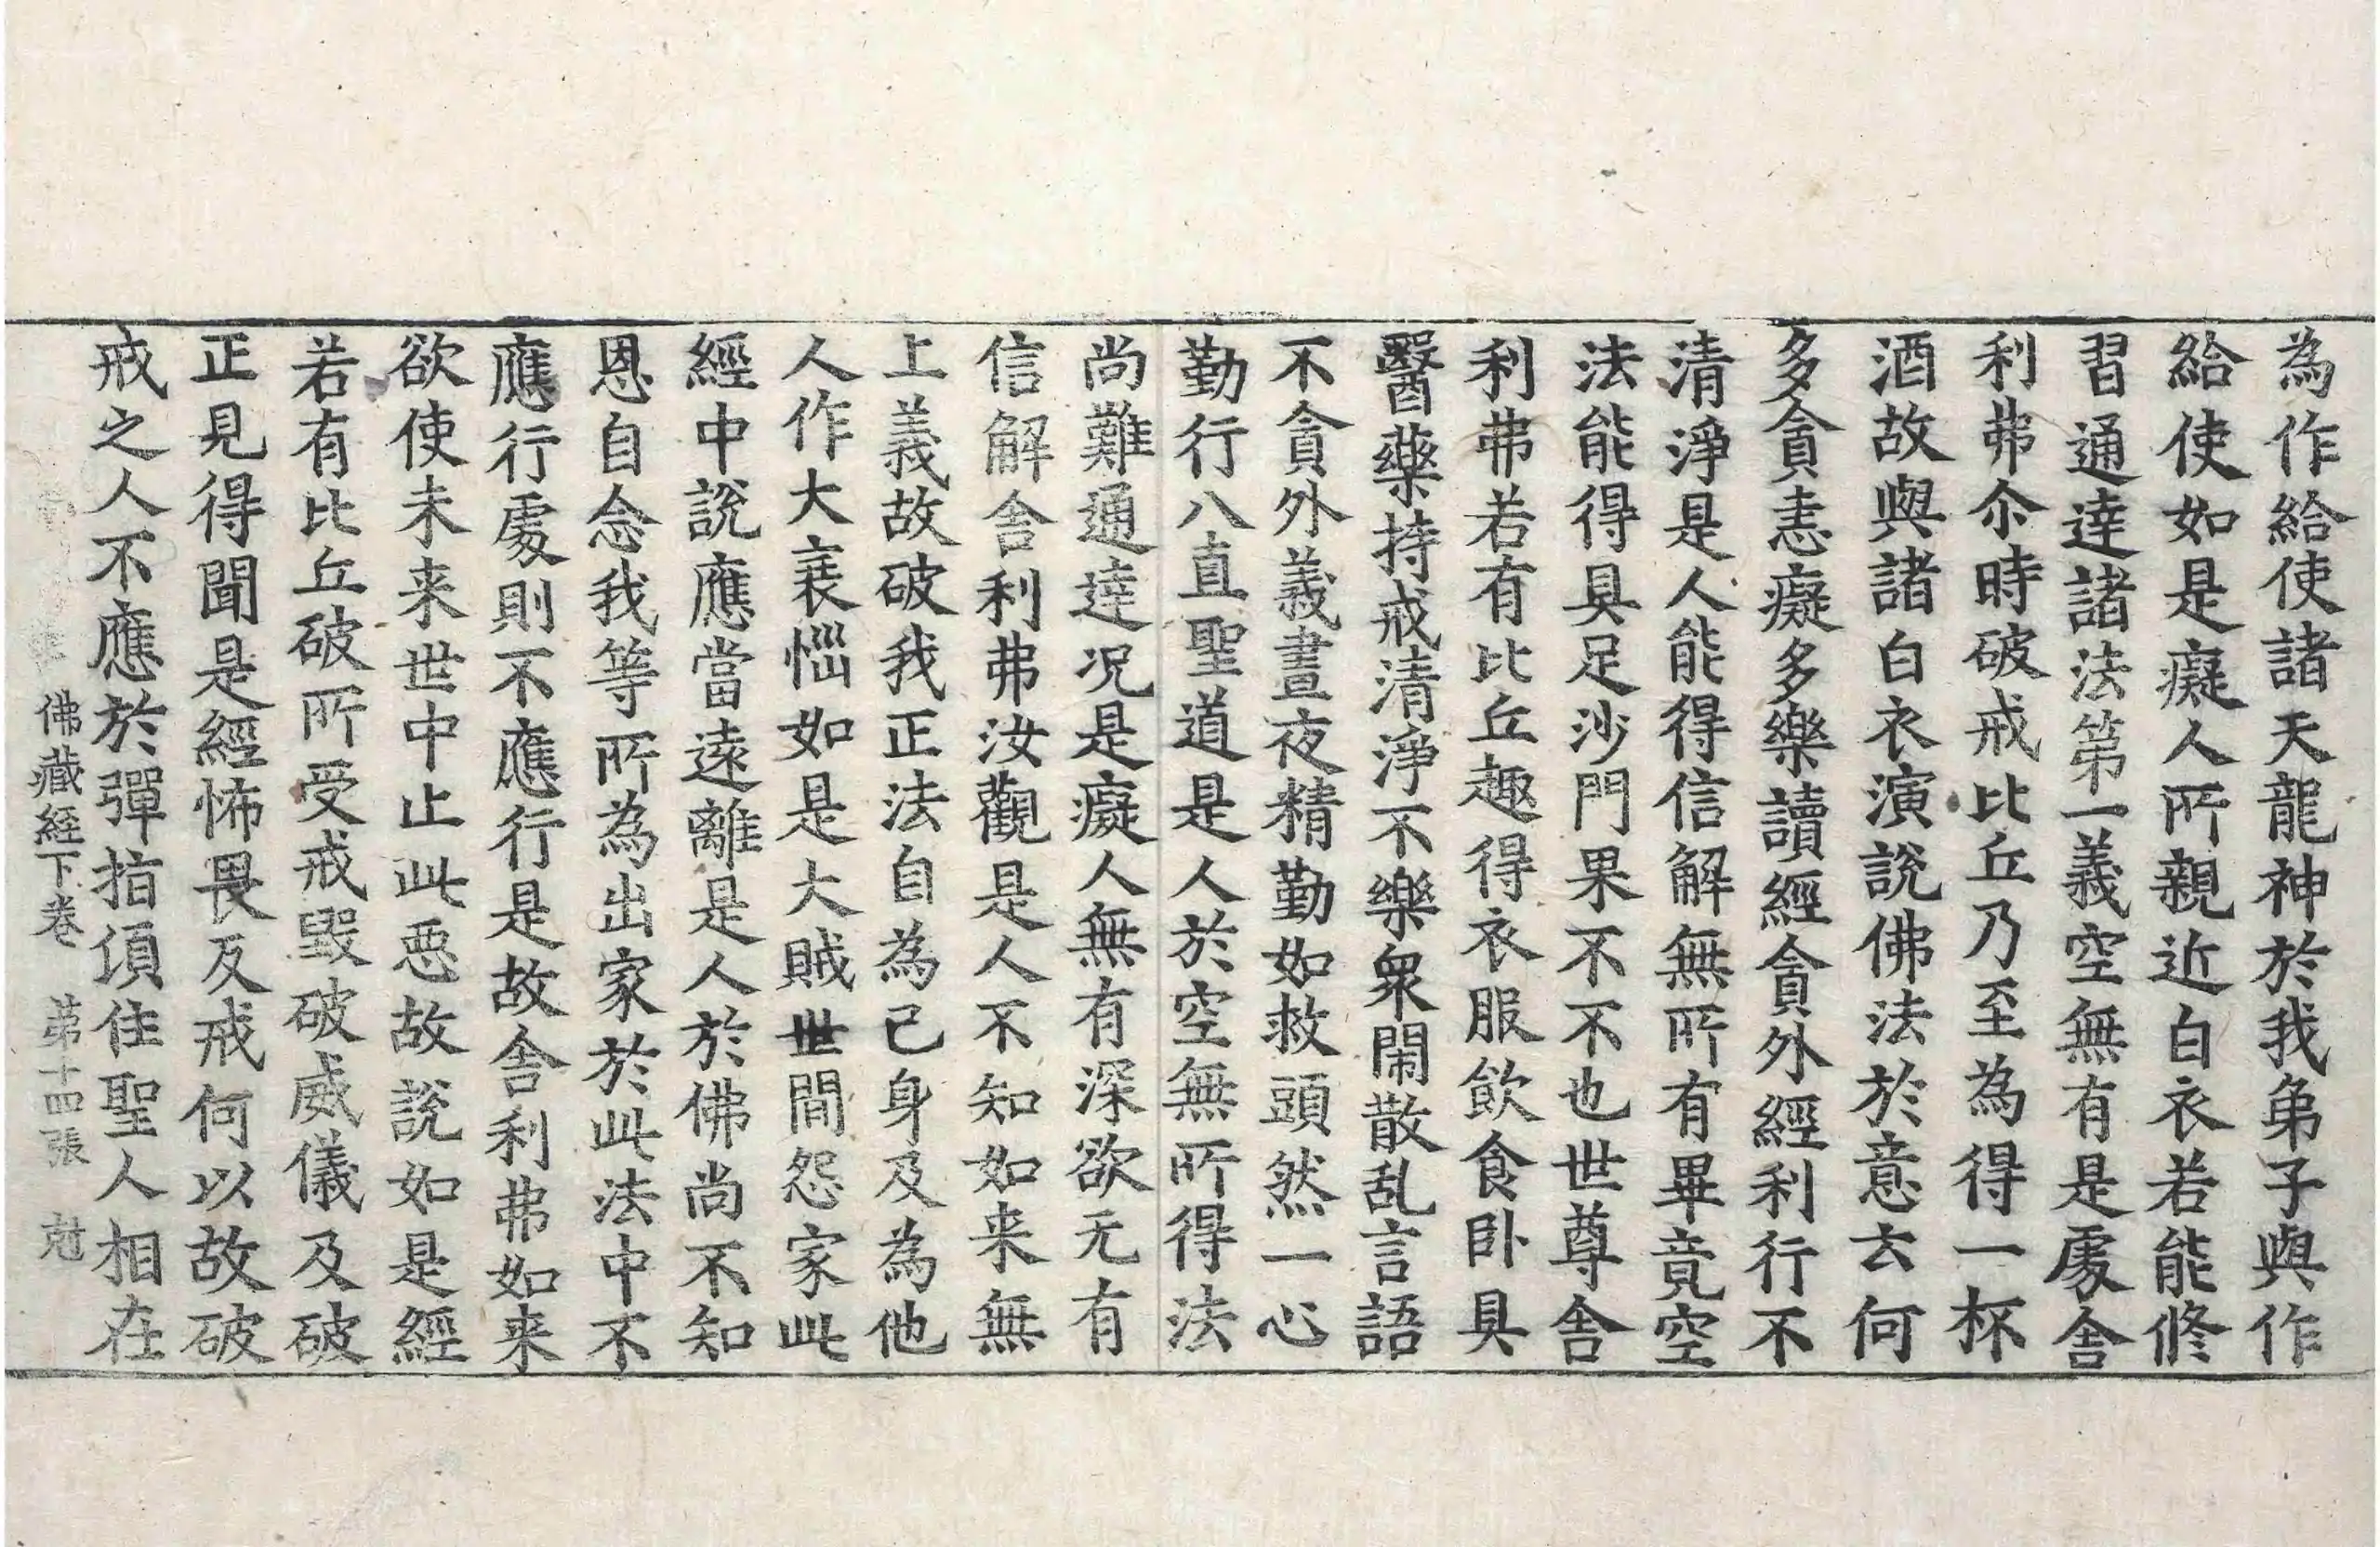 為作給使諸天龍神於我弟子與作
給使如是癡人所親近白衣若能修
習通達諸法第一義空無有是處舍
利弗尒時破戒比丘乃至為得一杯
酒故與諸白衣演說佛法於意云何
多貪恚癡多樂讀經貪外經利行不
清淨是人能得信解無所有畢竟空
法能得具足沙門果不不也世尊舍
利弗若有比丘趣得衣服飲食卧具
醫藥持戒清淨不樂衆閙散乱言語
不貪外義晝夜精勤如救頭然一心
勤行八直聖道是人於空無所得法
尚難通達況是癡人無有深欲无有
信解舍利弗汝觀是人不知如来無
上義故破我正法自為己身及為他
人作大衰惱如是大賊世間怨家此
經中說應當遠離是人於佛尚不知
恩自念我等所為出家於此法中不
應行處則不應行是故舍利弗如来
欲使未来世中止此惡故說如是經
若有比丘破所受戒毀破威儀及破
正見得聞是經怖畏反戒何以故破
戒之人不應於彈指頃住聖人相在
佛藏経下卷 第十四張 尅